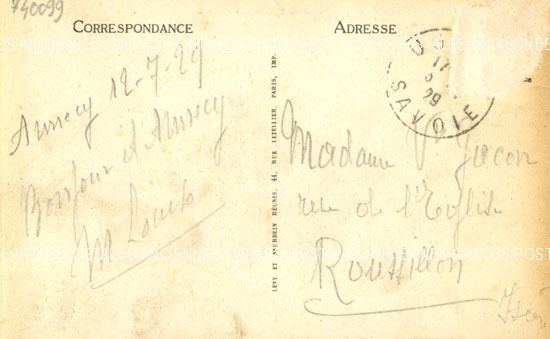 740099
CORRESPONDANCE
ADRESSE
Annecy 12-7-29
Bonjour d'Annecy
M
LEVY ET NEURDEIN RÉUNIS, 44, RUE LETELLIER, PARIS, IMP.
SAVOIE
29
Madame V. Jacon
rue de l'Eglise
Roussillon
Isère